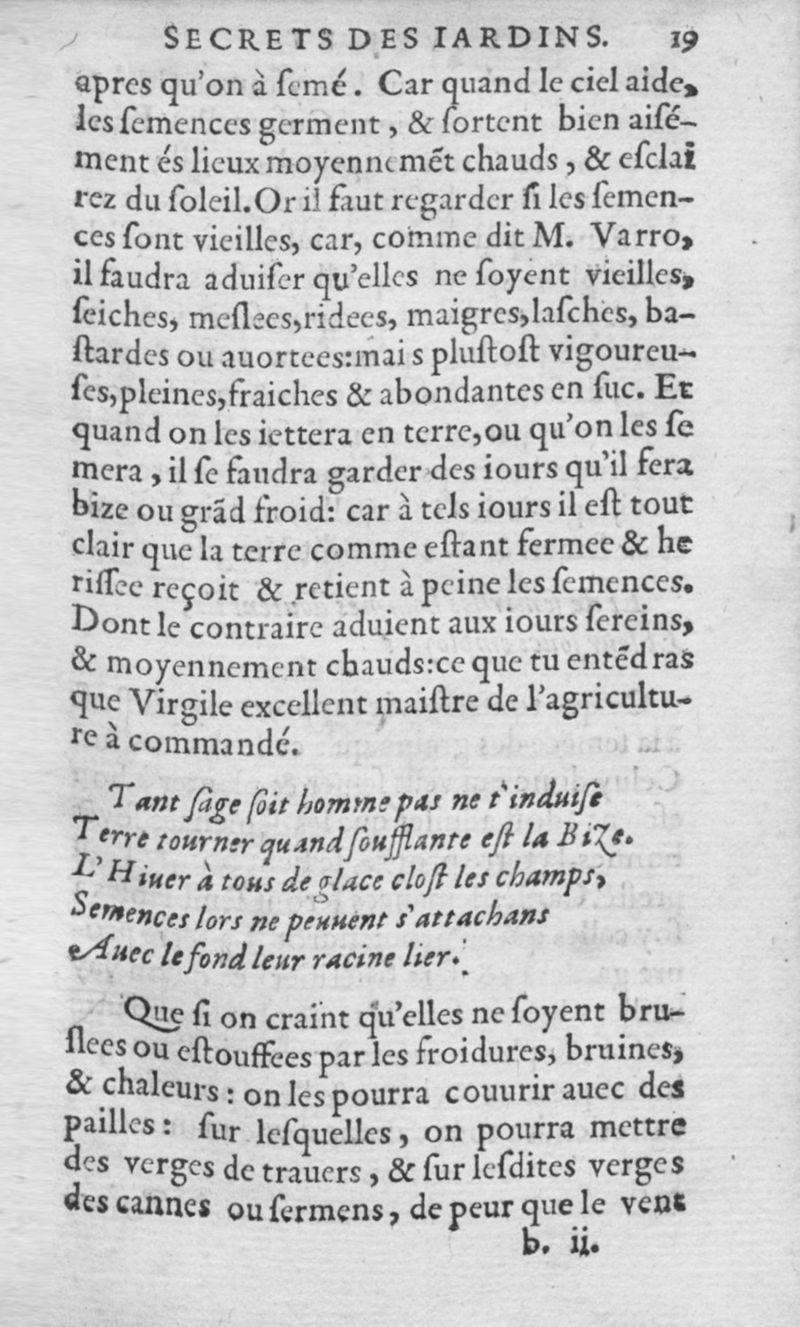 SECRETS DES IARDINS. 19
apres qu'on à ſemé. Car quand le ciel aide,
les ſemences germent, & ſortent bien aiſé-
ment és lieux moyennemẽt chauds, & eſclai
rez du ſoleil. Or il faut regarder ſi les ſemen-
ces ſont vieilles, car, comme dit M. Varro,
il faudra aduiſer qu'elles ne ſoyent vieilles,
ſeiches, meſlees, ridees, maigres, laſches, ba-
ſtardes ou auortees: mai s pluſtoſt vigoureu-
ſes, pleines, fraiches & abondantes en ſuc. Et
quand on les iettera en terre, ou qu'on les ſe
mera, il ſe faudra garder des iours qu'il fera
bize ou grãd froid: car à tels iours il eſt tout
clair que la terre comme eſtant fermee & he
riſſee reçoit & retient à peine les ſemences.
Dont le contraire aduient aux iours ſereins,
& moyennement chauds: ce que tu entẽdras
que Virgile excellent maiſtre de l'agricultu-
re à commandé.
Tant ſage ſoit homme pas ne t'induiſe
Terre tourner quand ſoufflante eſt la Bize.
L'Hiuer à tous de glace cloſt les champs,
Semences lors ne peuuent s'attachans
Auec le fond leur racine lier.
Que ſi on craint qu'elles ne ſoyent bru-
ſlees ou eſtouffees par les froidures, bruines,
& chaleurs: on les pourra couurir auec des
pailles: ſur leſquelles, on pourra mettre
des verges de trauers, & ſur leſdites verges
des cannes ou ſermens, de peur que le vent
b. ii.